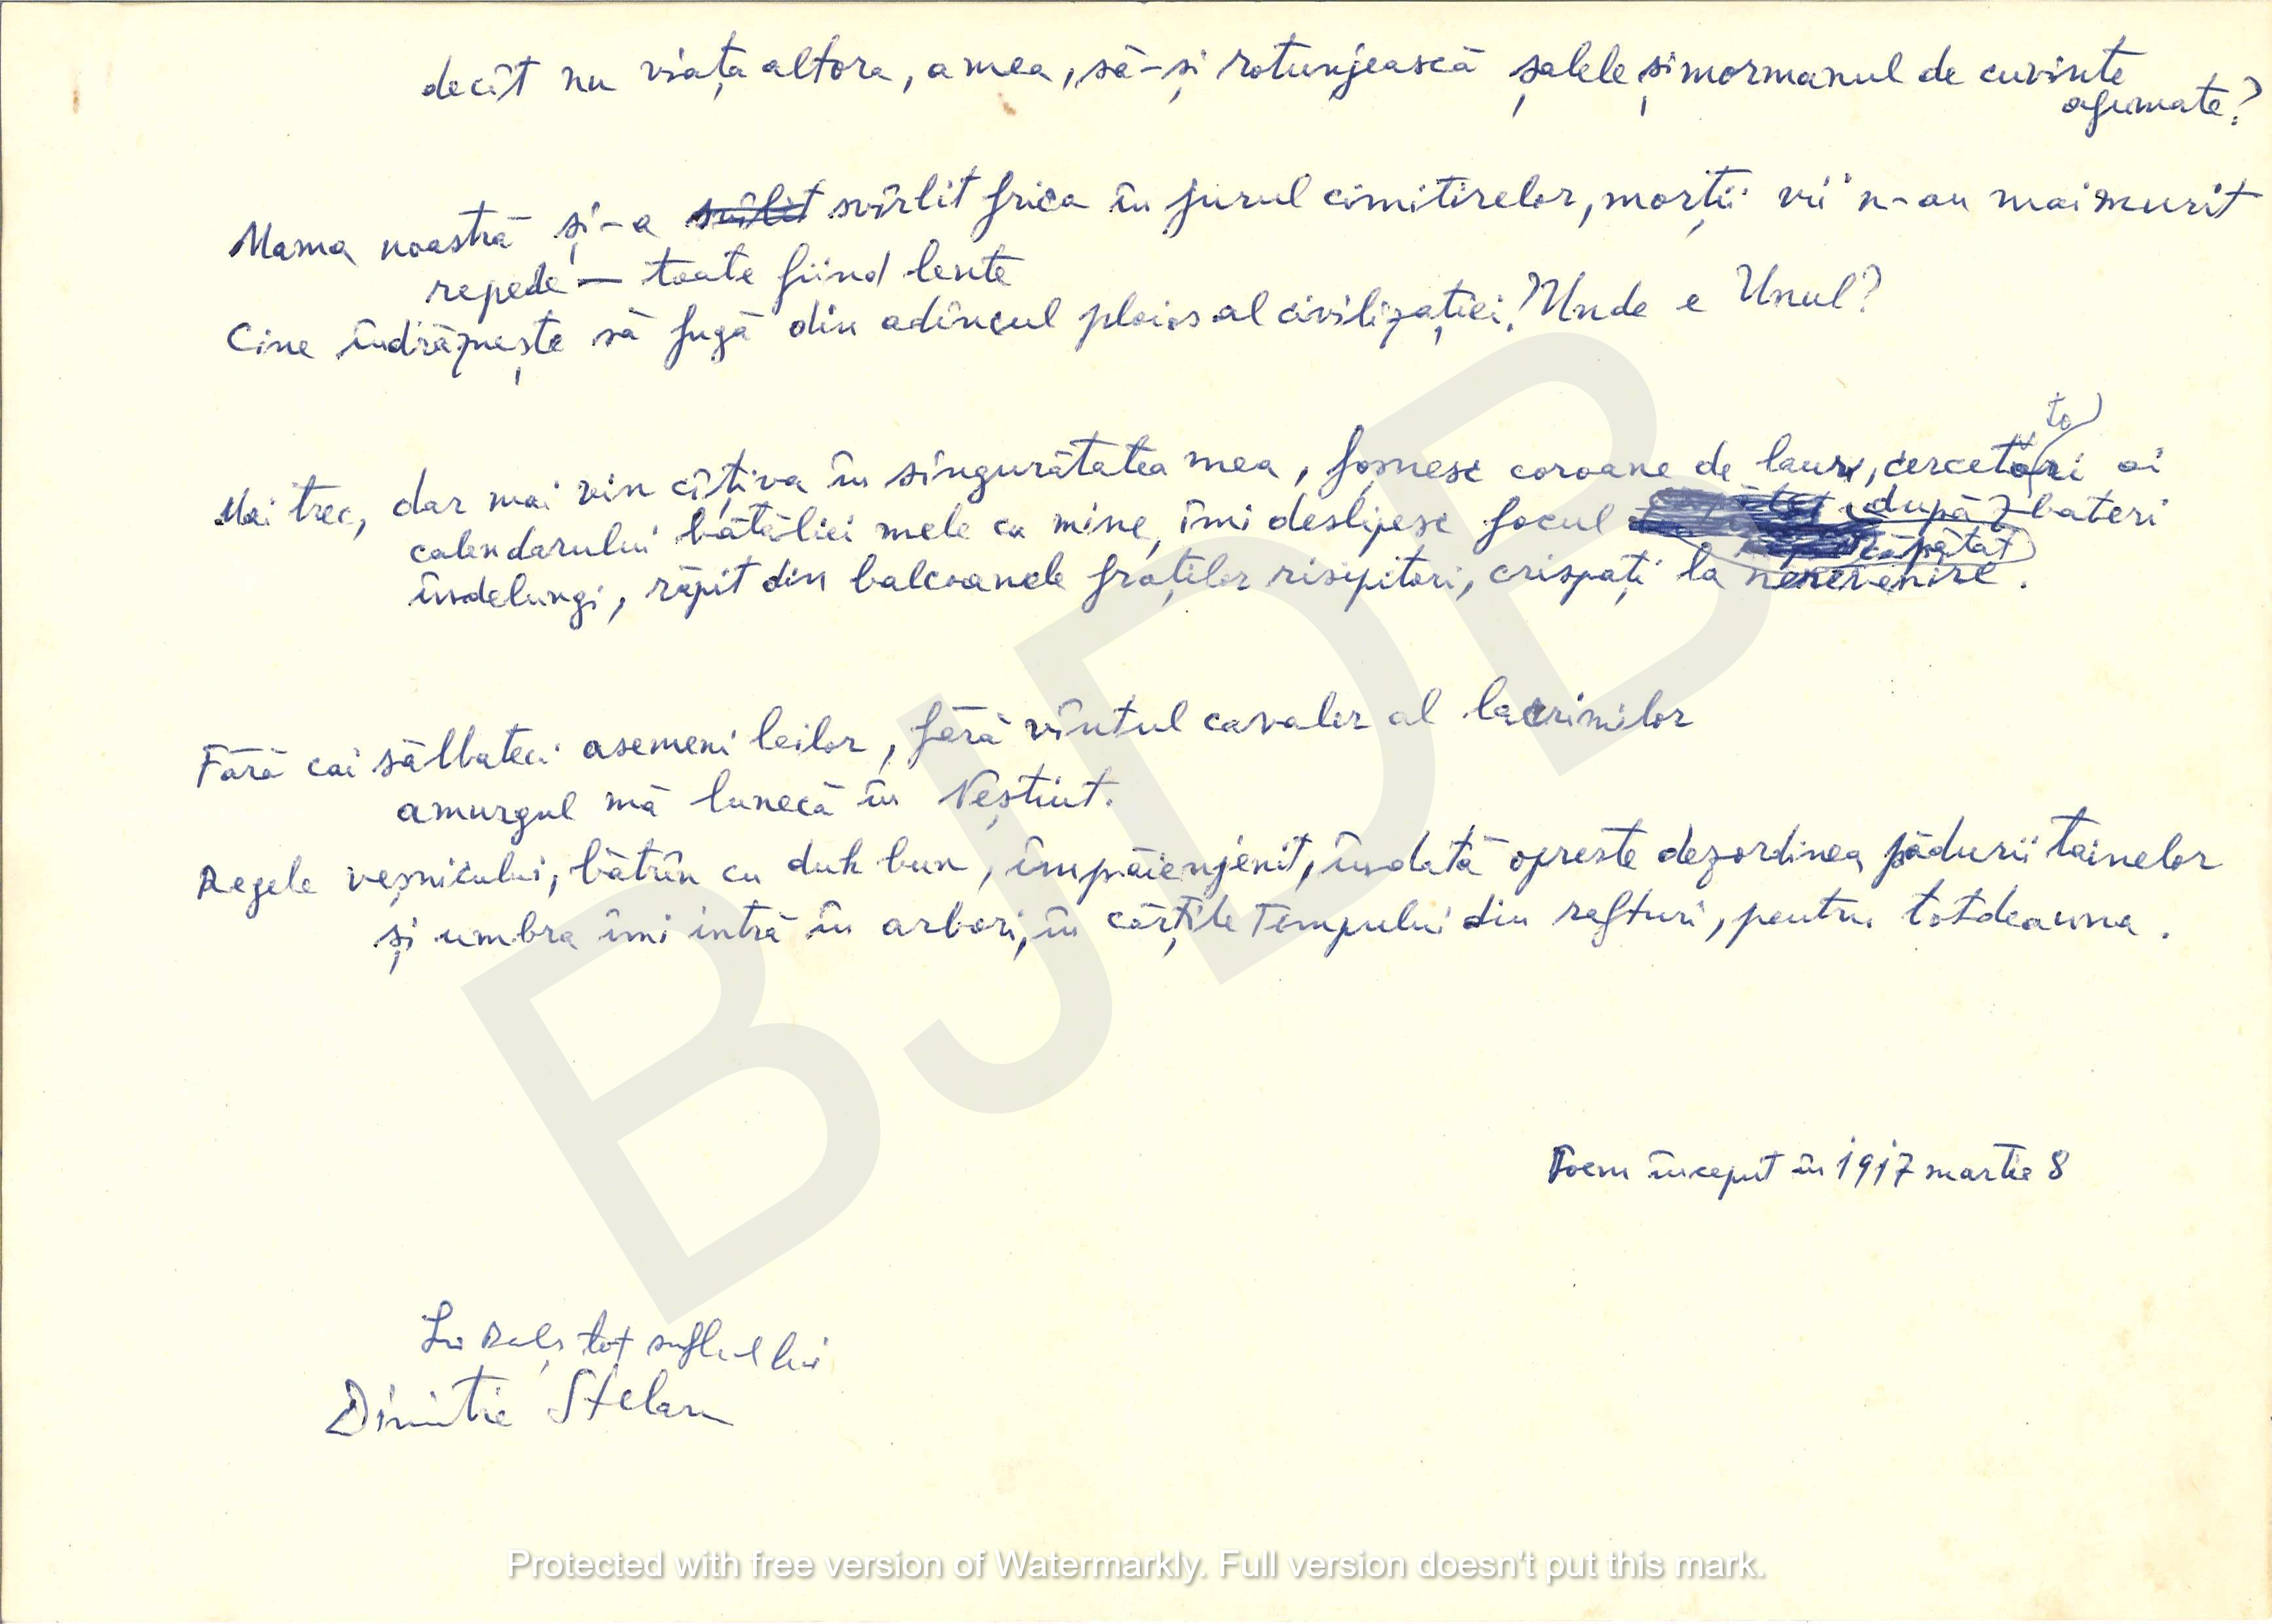 decît nu viața altora, a mea, să-și rotunjească șalele și mormanul de cuvinte
afumate?
Mama noastră și-a svîlit svîrlit frica în jurul cimitirelor, morții vii n-au mai murit
repede — toate fiind lente
Cine îndrăznește să fugă din adîncul ploios al civilizației? Unde e Unul?
to
Mai trec, dar mai vin cîțiva în singurătatea mea, foșnesc coroane de lauri, cercetări ai
calendarului bătăliei mele cu mine, îmi deslipesc focul căpătat după bateri
îndelungi, răpit din balcoanele fraților risipitori, crispați la nerevenire.
Fără cai sălbateci asemeni leilor, fără vîntul cavaler al lacrimilor
amurgul mă lunecă în Neștiut.
Regele veșnicului, bătrîn cu duh bun, împăienjenit, îndată oprește dezordinea pădurii tainelor
și umbra îmi intră în arbori, în cărțile Timpului din rafturi, pentru totdeauna.
Poem început în 1917 martie 8
Lui tot sufletul lui
Dimitrie Stelaru
BJDB
Protected with free version of Watermarkly. Full version doesn't put this mark.